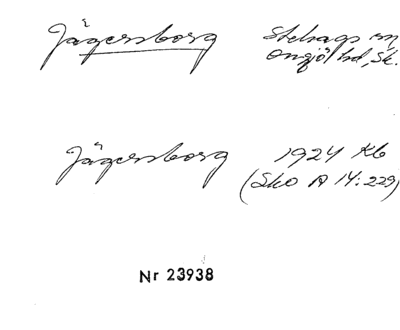 Jägersborg Stehags sn
Onsjö hd, Sk.
Jägersborg 1924 Kb
(Sko A 14:229)
Nr 23938